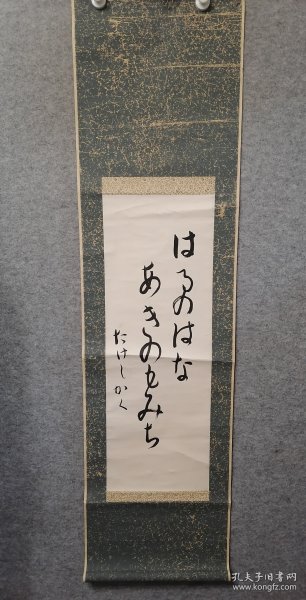 はるのはな
あきのもみち
たけしかく
孔夫子旧书网
www.kongfz.com